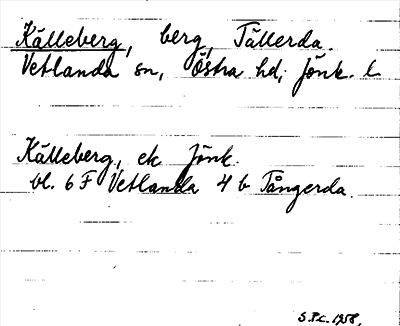 Källeberg, berg, Tällerda.
Vetlanda sn, Östra hd, Jönk. l
Källeberg, ek Jönk.
bl. 6 F Vetlanda 4 b Tångerda.
S.P.C. 1958.